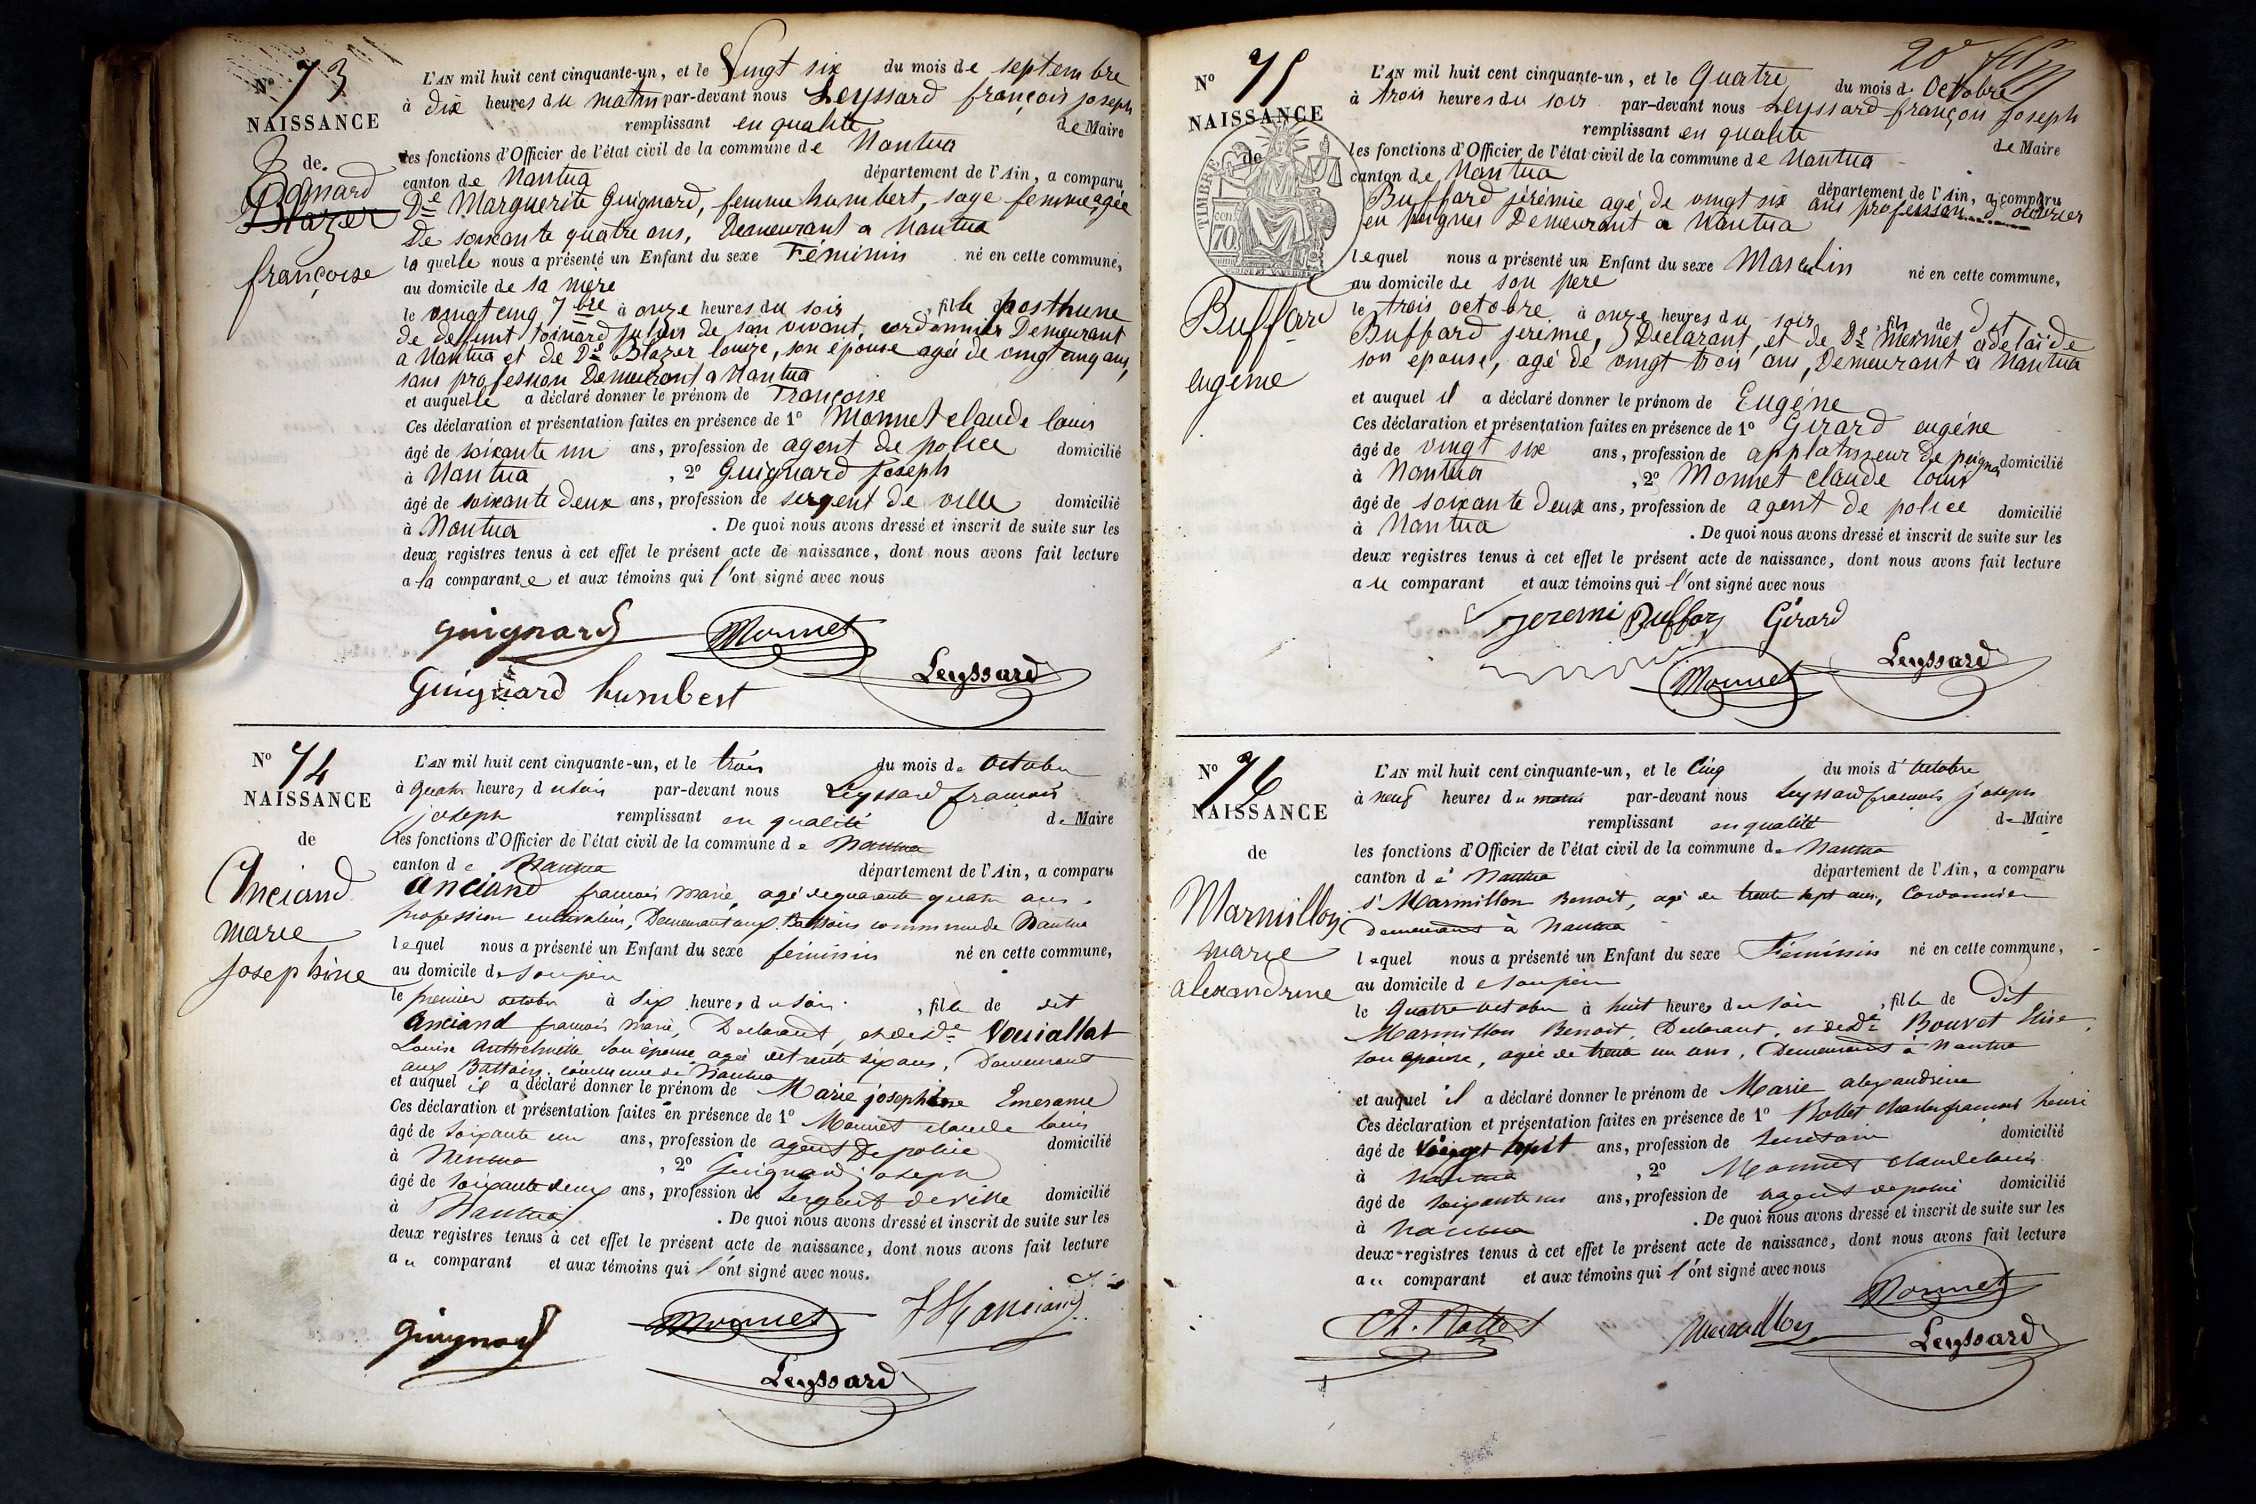 N° 73
NAISSANCE
de
Blazer
françoise
L'AN mil huit cent cinquante-un, et le Vingt six du mois de septembre
à dix heures du matin par-devant nous Leyssard françois joseph
remplissant en qualité de Maire
les fonctions d'Officier de l'état civil de la commune de Nantua
canton de Nantua département de l'Ain, a comparu
De Marguerite Guignard, femme humbert, sage femme, agée
De soixante quatre ans, Demeurant a Nantua
laquelle nous a présenté un Enfant du sexe Féminin né en cette commune,
au domicile de sa mère
le vingt cinq 7bre à onze heures du soir, fille posthume
de deffunt toinard de son vivant, cordonnier Demeurant
a Nantua et de De Blazer louize, son épouse agée de vingt cinq ans,
sans profession Demeurant a Nantua
et auquelle a déclaré donner le prénom de Françoise
Ces déclaration et présentation faites en présence de 1° Monnet claude louis
âgé de soixante un ans, profession de agent de police domicilié
à Nantua, 2° Guignard Joseph
âgé de soixante deux ans, profession de sergent de ville domicilié
à Nantua. De quoi nous avons dressé et inscrit de suite sur les
deux registres tenus à cet effet le présent acte de naissance, dont nous avons fait lecture
a la comparante et aux témoins qui l'ont signé avec nous
guignard Monnet
Guignard humbert Leyssard
N° 74
NAISSANCE
de
Anciand
marie
josephine
L'AN mil huit cent cinquante-un, et le trois du mois de octobre
à quatre heures du soir par-devant nous Leyssard françois
joseph remplissant en qualité de Maire
les fonctions d'Officier de l'état civil de la commune de Nantua
canton de Nantua département de l'Ain, a comparu
Anciand françois marie, agé de quarante quatre ans,
profession cultivateur, Demeurant aux Battoirs commune de Nantua
lequel nous a présenté un Enfant du sexe féminin né en cette commune,
au domicile de son père
le premier octobre à six heures du soir, fille de dit
Anciand françois marie, Déclarant, et de De Vouiallat
Louise Anthelmette son épouse, agée de trente six ans, Demeurant
aux Battoirs commune de Nantua
et auquel il a déclaré donner le prénom de Marie josephine Emerame
Ces déclaration et présentation faites en présence de 1° Monnet claude louis
âgé de soixante un ans, profession de agent de police domicilié
à Nantua, 2° Guignard joseph
âgé de soixante deux ans, profession de sergent de ville domicilié
à Nantua. De quoi nous avons dressé et inscrit de suite sur les
deux registres tenus à cet effet le présent acte de naissance, dont nous avons fait lecture
au comparant et aux témoins qui l'ont signé avec nous.
guignard Monnet Anciand
Leyssard
N° 75
NAISSANCE
de
TIMBRE
70
Buffard
eugène
L'AN mil huit cent cinquante-un, et le Quatre du mois d. Octobre
à trois heures du soir par-devant nous Leyssard françois joseph
remplissant en qualité de Maire
les fonctions d'Officier de l'état civil de la commune de Nantua
canton de Nantua département de l'Ain, a comparu
Buffard jérémie agé de vingt six ans profession d'ouvrier
en peignes Demeurant a Nantua
lequel nous a présenté un Enfant du sexe Masculin né en cette commune,
au domicile de son père
le trois octobre à onze heures du soir, fils de dit
Buffard jérémie, Déclarant, et de De Mermet adelaïde
son epouse, agé de vingt trois ans, Demeurant a Nantua
et auquel il a déclaré donner le prénom de Eugène
Ces déclaration et présentation faites en présence de 1° Girard eugéne
âgé de vingt six ans, profession de applatisseur de peignes domicilié
à Nantua, 2° Monnet claude louis
âgé de soixante deux ans, profession de agent de police domicilié
à Nantua. De quoi nous avons dressé et inscrit de suite sur les
deux registres tenus à cet effet le présent acte de naissance, dont nous avons fait lecture
au comparant et aux témoins qui l'ont signé avec nous
jeremi Buffar Girard
Monnet Leyssard
N° 76
NAISSANCE
de
Marmillon
marie
alexandrine
L'AN mil huit cent cinquante-un, et le Cinq du mois d'Octobre
à neuf heures du matin par-devant nous Leyssard françois joseph
remplissant en qualité de Maire
les fonctions d'Officier de l'état civil de la commune de Nantua
canton de Nantua département de l'Ain, a comparu
s' Marmillon Benoit, agé de trente sept ans, Cordonnier
Demeurant à Nantua
lequel nous a présenté un Enfant du sexe Féminin né en cette commune,
au domicile de son père
le Quatre octobre à huit heures du soir, fille de Dit
Marmillon Benoit, Déclarant, et de De Bouvet Elise,
son épouse, agée de trente un ans, Demeurant à Nantua
et auquel il a déclaré donner le prénom de Marie alexandrine
Ces déclaration et présentation faites en présence de 1° Rollet charles françois henri
âgé de vingt sept ans, profession de secrétaire domicilié
à Nantua, 2° Monnet claude louis
âgé de soixante un ans, profession de agent de police domicilié
à Nantua. De quoi nous avons dressé et inscrit de suite sur les
deux registres tenus à cet effet le présent acte de naissance, dont nous avons fait lecture
au comparant et aux témoins qui l'ont signé avec nous
Monnet
Ch. Rollet Marmillon Leyssard